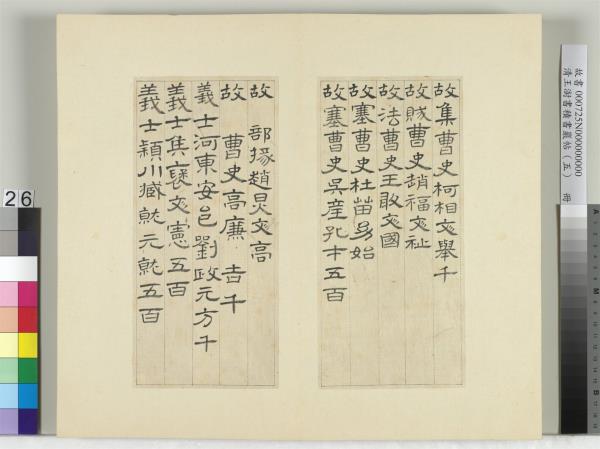 故書000725N000000000
清王澍書積書巖帖（五） 冊
故集曹史柯相文舉千
故賊曹史趙福文祉
故法曹史王敢文國
故塞曹史杜苗幼始
故塞曹史吳產孔才五百
故 部掾趙炅文高
故 曹史高廉 吉千
義士河東安邑劉政元方千
義士侯褒文憲五百
義士潁川臧就元就五百
26